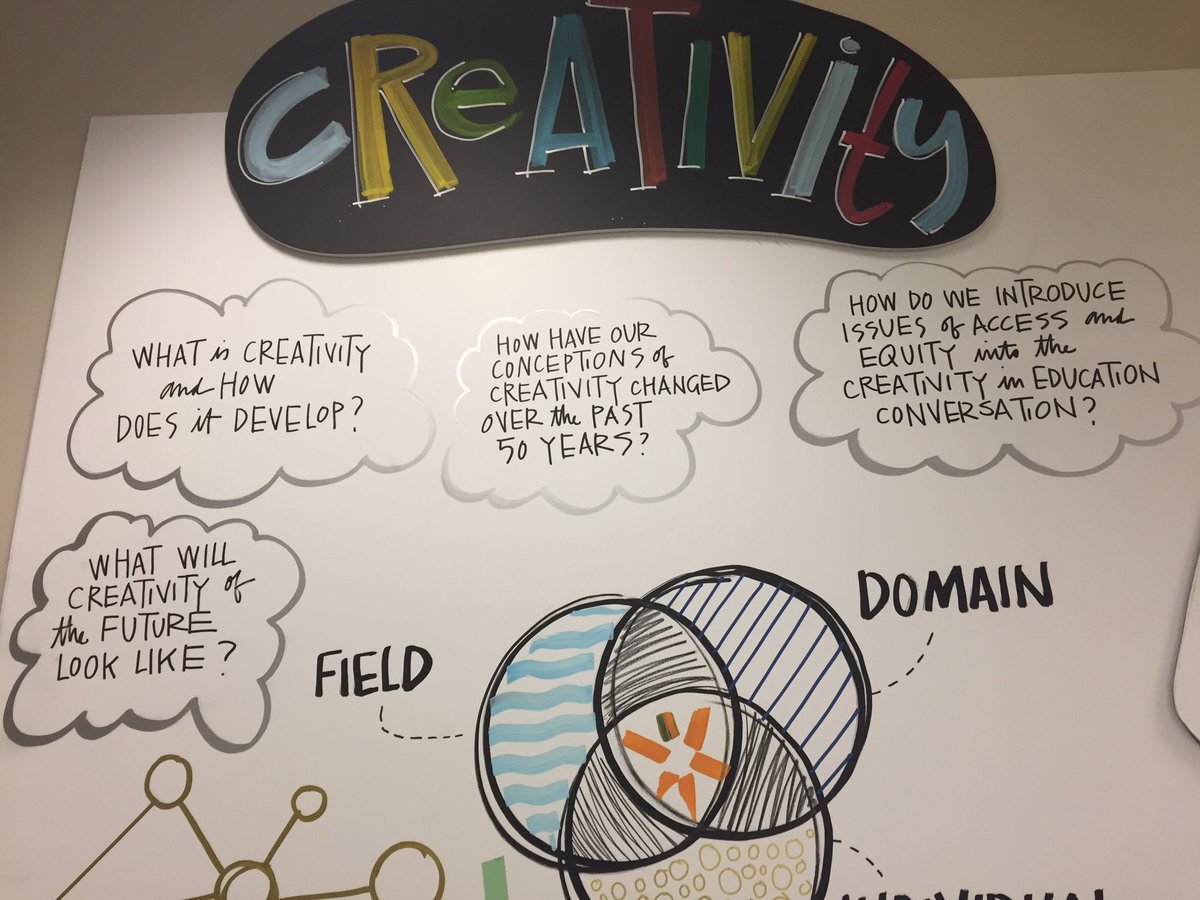 CREATIVITY
WHAT is CREATIVITY
and HOW
DOES it DEVELOP?
HOW HAVE OUR
CONCEPTIONS of
CREATIVITY CHANGED
OVER the PAST
50 YEARS?
HOW DO WE INTRODUCE
ISSUES of ACCESS and
EQUITY into the
CREATIVITY in EDUCATION
CONVERSATION?
WHAT WILL
CREATIVITY of
the FUTURE
LOOK LIKE?
FIELD
DOMAIN